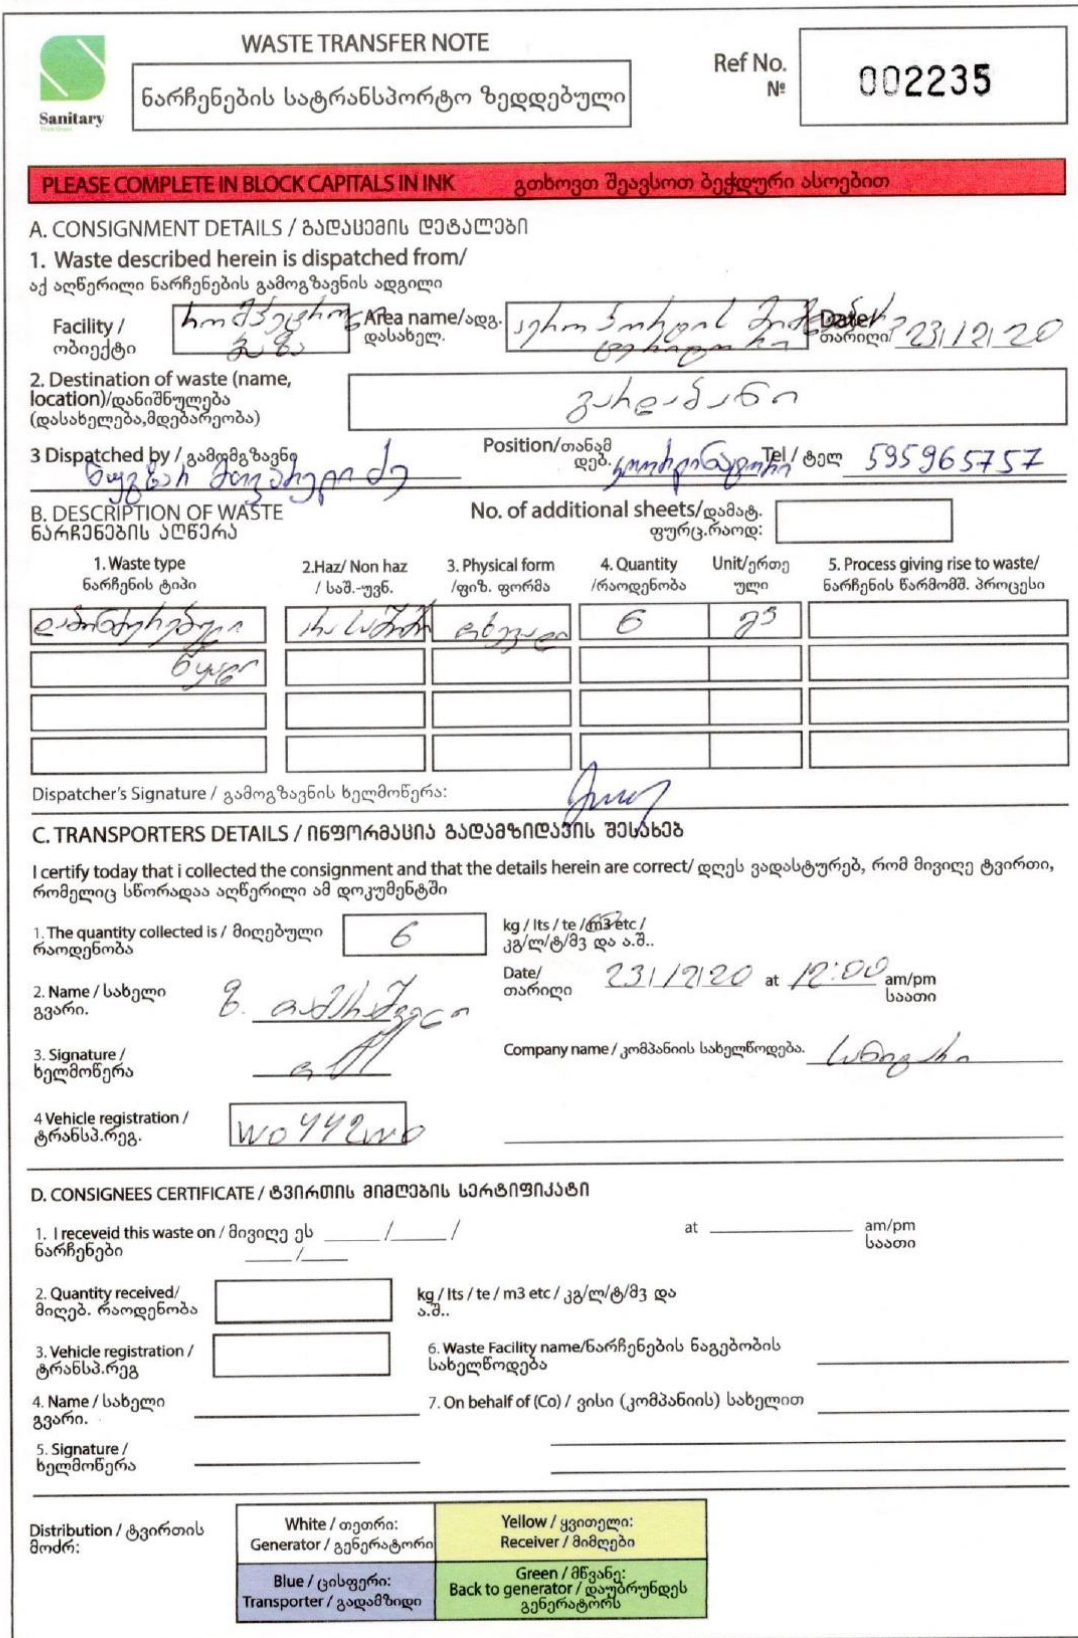 WASTE TRANSFER NOTE
ნარჩენების სატრანსპორტო ზედდებული
Ref No.
№
002235
Sanitary
PLEASE COMPLETE IN BLOCK CAPITALS IN INK გთხოვთ შეავსოთ ბეჭდური ასოებით
A. CONSIGNMENT DETAILS / გადაცემის დეტალები
1. Waste described herein is dispatched from/
აქ აღწერილი ნარჩენების გამოგზავნის ადგილი
Facility /
ობიექტი
ბაზა
Area name/ადგ.
დასახელ.
აეროპორტის
ტერიტორია
Date/
თარიღი 23/12/20
2. Destination of waste (name,
location)/დანიშნულება
(დასახელება,მდებარეობა)
გარდაბანი
3 Dispatched by / გამომგზავნი
ნუგზარ
Position/თანამ
დებ. კოორდინატორი
Tel / ტელ 595965757
B. DESCRIPTION OF WASTE
ნარჩენების აღწერა
No. of additional sheets/დამატ.
ფურც.რაოდ:
1. Waste type
ნარჩენის ტიპი
2.Haz/ Non haz
/ საშ.-უვნ.
3. Physical form
/ფიზ. ფორმა
4. Quantity
/რაოდენობა
Unit/ერთე
ული
5. Process giving rise to waste/
ნარჩენის წარმომშ. პროცესი
დაბინძურებული არა საშიში თხევადი 6 მ3
წყალი
Dispatcher's Signature / გამოგზავნის ხელმოწერა:
C. TRANSPORTERS DETAILS / ინფორმაცია გადამზიდავის შესახებ
I certify today that i collected the consignment and that the details herein are correct/ დღეს ვადასტურებ, რომ მივიღე ტვირთი,
რომელიც სწორადაა აღწერილი ამ დოკუმენტში
1. The quantity collected is / მიღებული
რაოდენობა
6
kg / lts / te / m3 etc /
კგ/ლ/ტ/მ3 და ა.შ..
2. Name / სახელი
გვარი.
Date/
თარიღი 23/12/20 at 12:00 am/pm
საათი
3. Signature /
ხელმოწერა
Company name / კომპანიის სახელწოდება. სანიტარი
4 Vehicle registration /
ტრანსპ.რეგ.
WO442WO
D. CONSIGNEES CERTIFICATE / ტვირთის მიმღების სერტიფიკატი
1. I receveid this waste on / მივიღე ეს ____/____/
ნარჩენები ____/____
at ________ am/pm
საათი
2. Quantity received/
მიღებ. რაოდენობა
kg / lts / te / m3 etc / კგ/ლ/ტ/მ3 და
ა.შ..
3. Vehicle registration /
ტრანსპ.რეგ
6. Waste Facility name/ნარჩენების ნაგებობის
სახელწოდება
4. Name / სახელი
გვარი.
7. On behalf of (Co) / ვისი (კომპანიის) სახელით
5. Signature /
ხელმოწერა
Distribution / ტვირთის
მოძრ:
White / თეთრი:
Generator / გენერატორი
Yellow / ყვითელი:
Receiver / მიმღები
Blue / ცისფერი:
Transporter / გადამზიდი
Green / მწვანე:
Back to generator / დაუბრუნდეს
გენერატორს